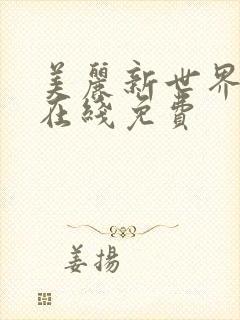 美麗新世界
在綫免費
姜揚